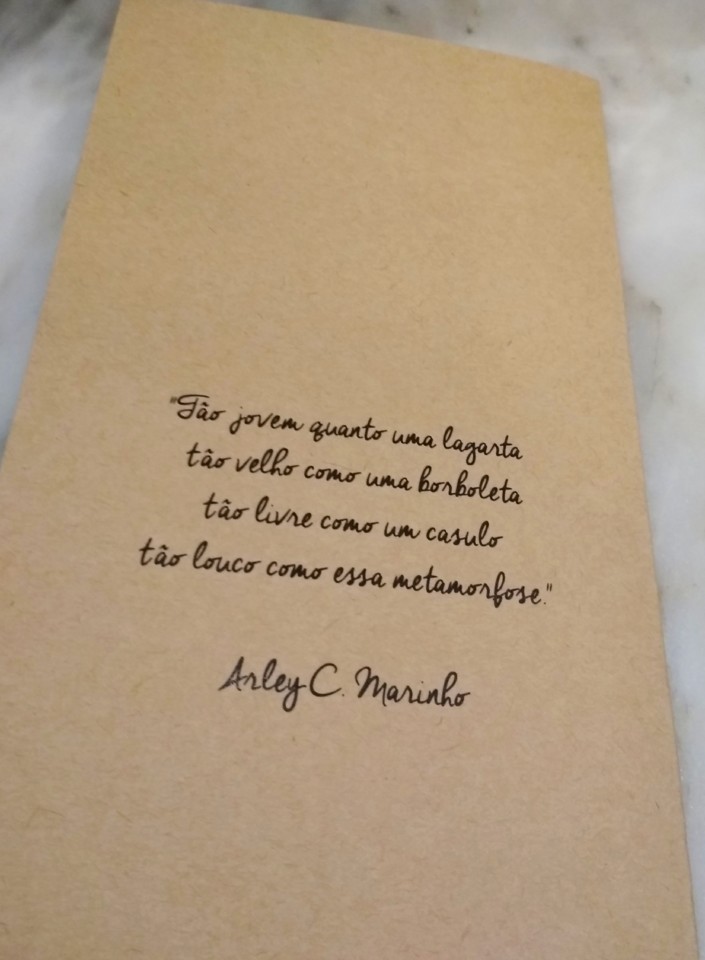 "Tão jovem quanto uma lagarta
tão velho como uma borboleta
tão livre como um casulo
tão louco como essa metamorfose."
Arley C. Marinho